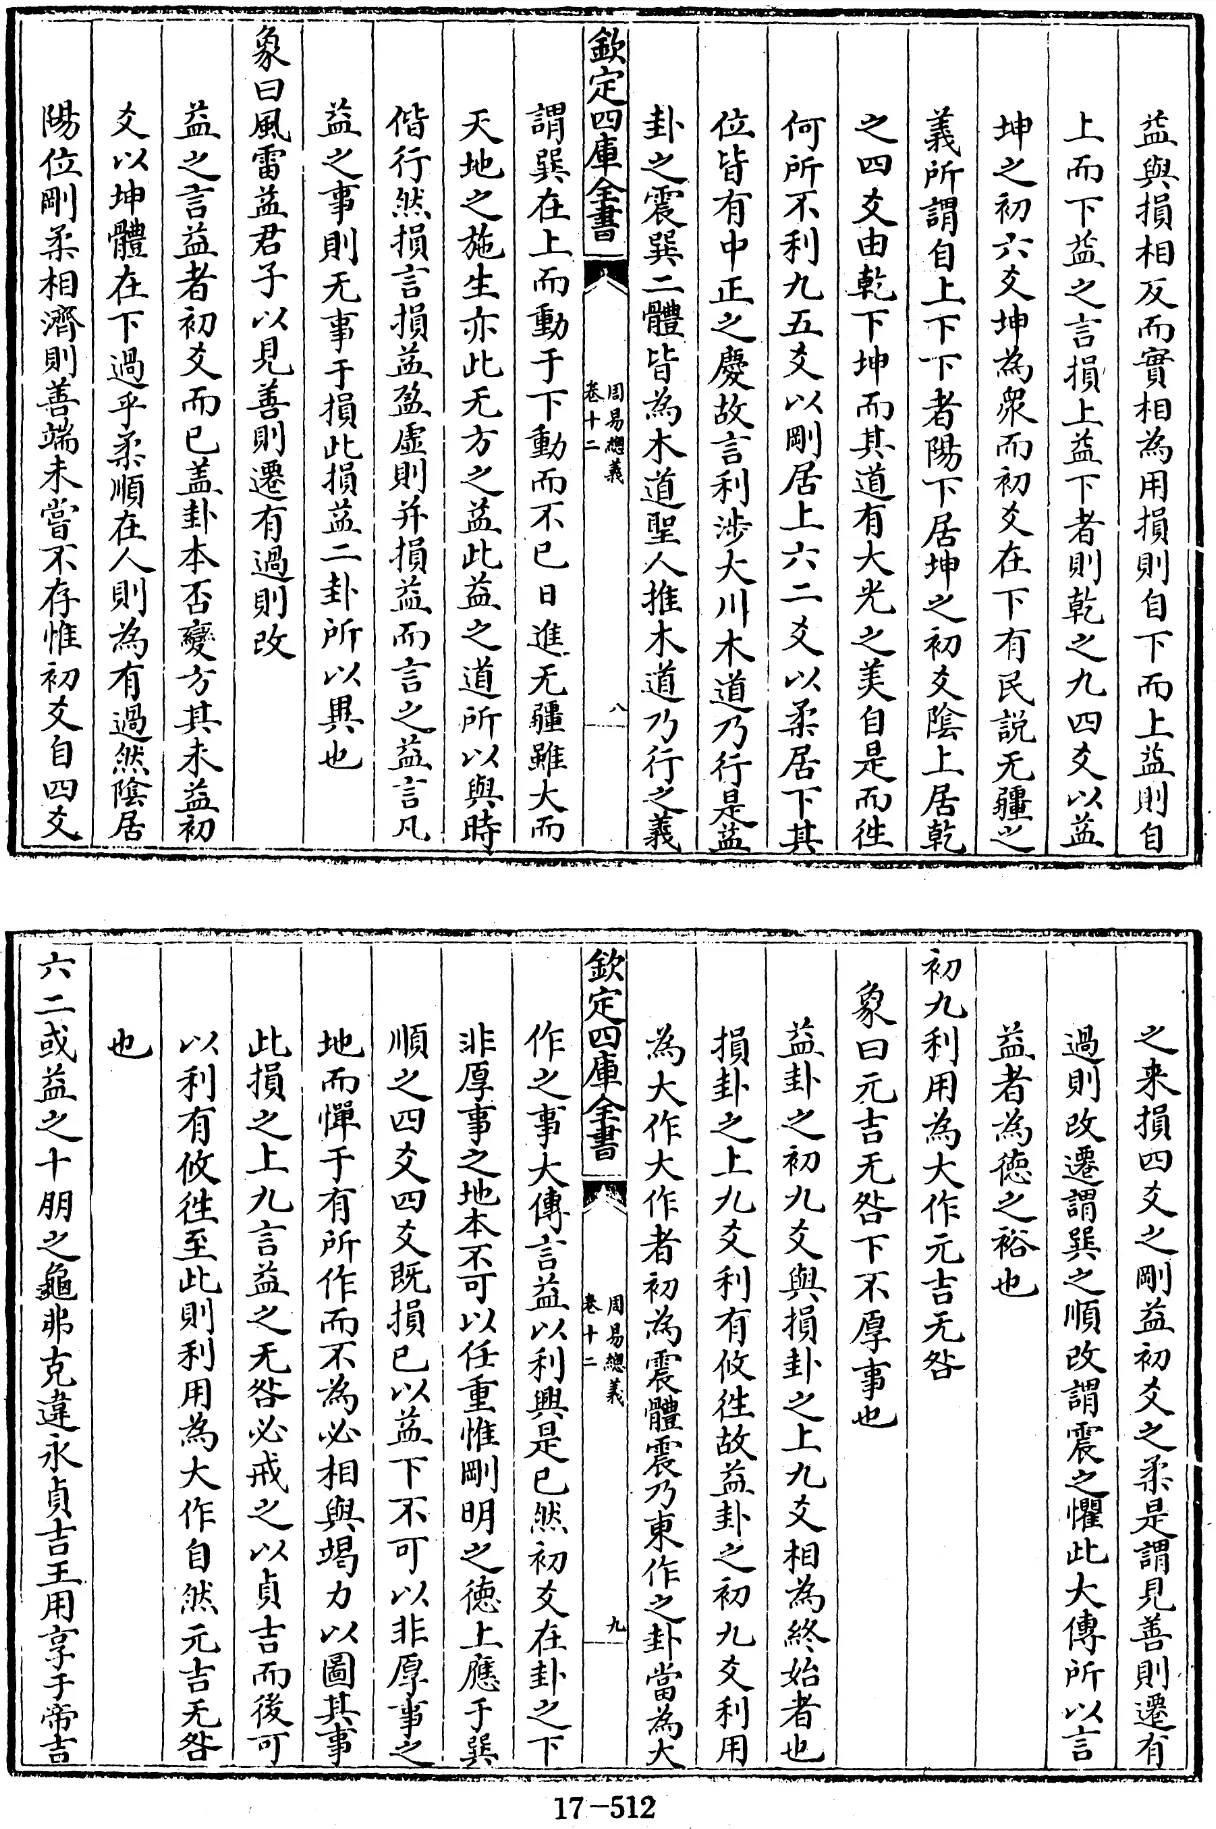 益與損相反而實相為用損則自下而上益則自
上而下益之言損上益下者則乾之九四爻以益
坤之初六爻坤為衆而初爻在下有民說无疆之
義所謂自上下下者陽下居坤之初爻陰上居乾
之四爻由乾下坤而其道有大光之美自是而徃
何所不利九五爻以剛居上六二爻以柔居下其
位皆有中正之慶故言利涉大川木道乃行是益
卦之震巽二體皆為木道聖人推木道乃行之義
欽定四庫全書
周易總義
卷十二
八
謂巽在上而動于下動而不已日進无疆雖大而
天地之施生亦此无方之益此益之道所以與時
偕行然損言損益盈虛則并損益而言之益言凡
益之事則无事于損此損益二卦所以異也
象曰風雷益君子以見善則遷有過則改
益之言益者初爻而已盖卦本否變方其未益初
爻以坤體在下過乎柔順在人則為有過然陰居
陽位剛柔相濟則善端未嘗不存惟初爻自四爻
之來損四爻之剛益初爻之柔是謂見善則遷有
過則改遷謂巽之順改謂震之懼此大傳所以言
益者為德之裕也
初九利用為大作元吉无咎
象曰元吉无咎下不厚事也
益卦之初九爻與損卦之上九爻相為終始者也
損卦之上九爻利有攸徃故益卦之初九爻利用
為大作大作者初為震體震乃東作之卦當為大
欽定四庫全書
周易總義
卷十二
九
作之事大傳言益以利興是已然初爻在卦之下
非厚事之地本不可以任重惟剛明之德上應于巽
順之四爻四爻既損已以益下不可以非厚事之
地而憚于有所作而不為必相與竭力以圖其事
此損之上九言益之无咎必戒之以貞吉而後可
以利有攸徃至此則利用為大作自然元吉无咎
也
六二或益之十朋之龜弗克違永貞吉王用享于帝吉
17-512